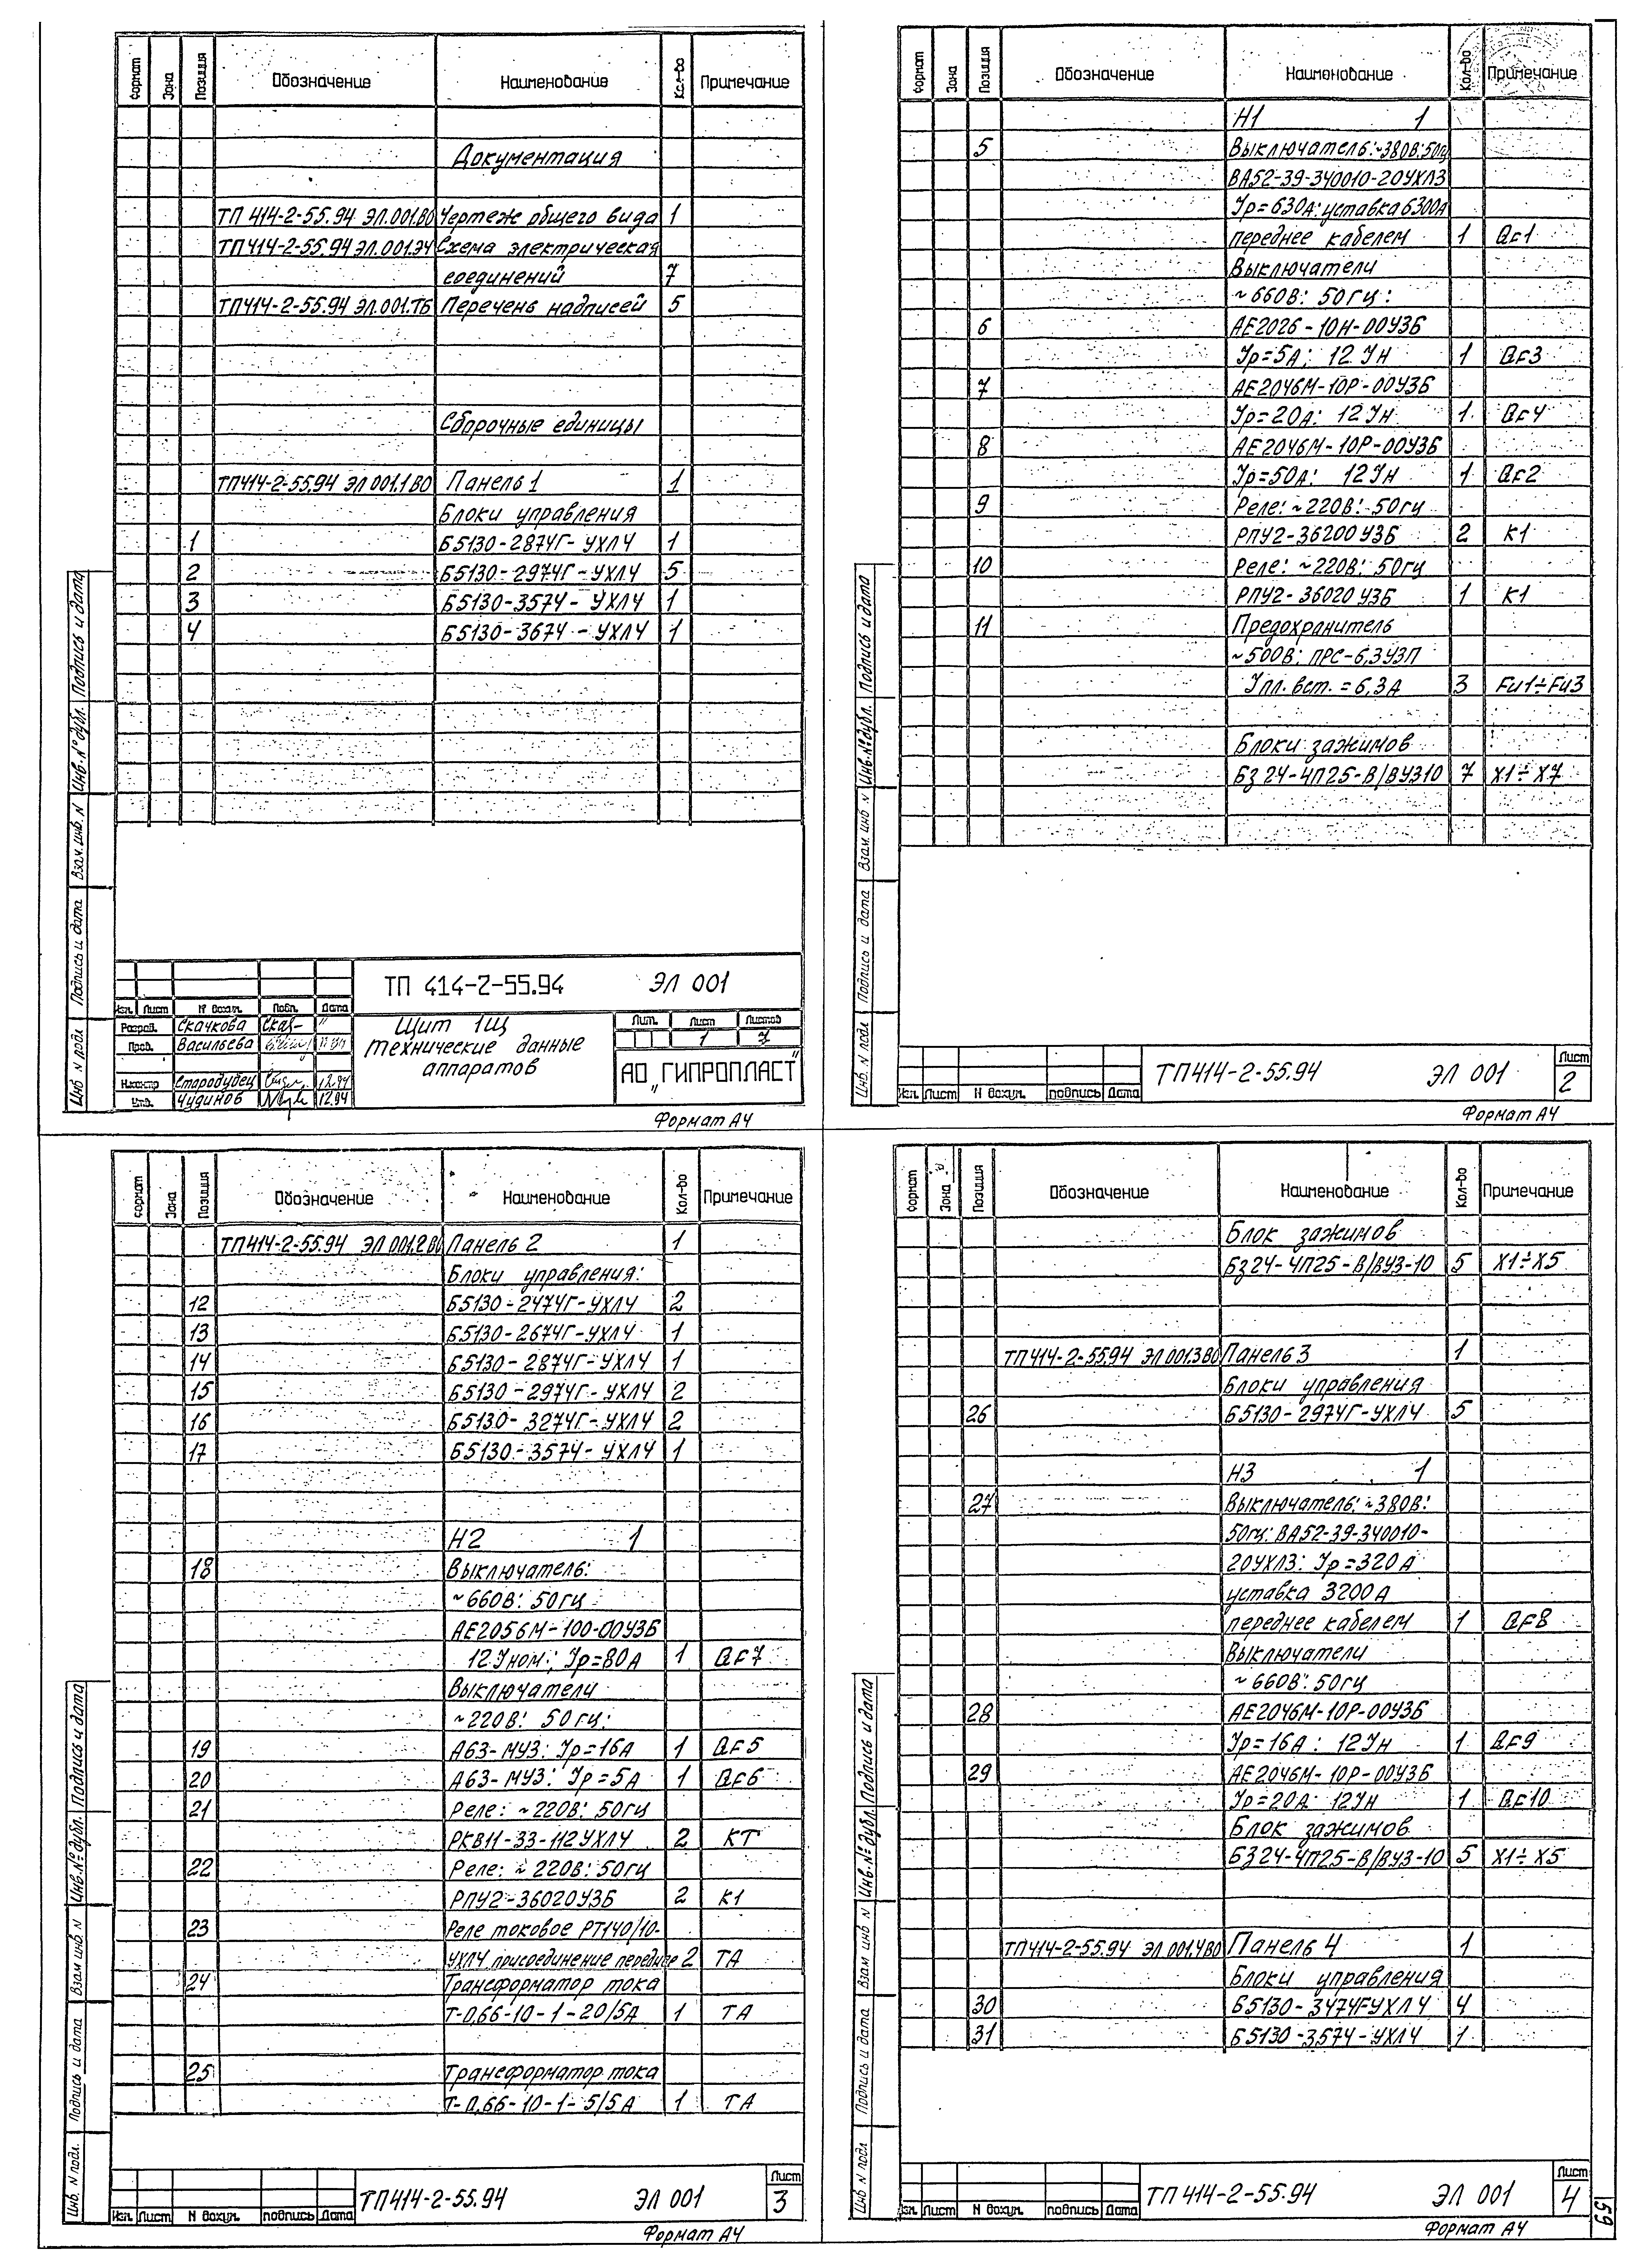 Формат Зона Позиция Обозначение Наименование Кол-во Примечание
Документация
ТП 414-2-55.94 ЭЛ.001.ВО Чертеж общего вида 1
ТП414-2-55.94 ЭЛ.001.Э4 Схема электрическая
соединений 7
ТП414-2-55.94 ЭЛ.001.ТБ Перечень надписей 5
Сборочные единицы
ТП414-2-55.94 ЭЛ 001.1 ВО Панель 1 1
Блоки управления
1 Б5130-2874Г-УХЛ4 1
2 Б5130-2974Г-УХЛ4 5
3 Б5130-3574-УХЛ4 1
4 Б5130-3674-УХЛ4 1
Инв. N подл Подпись и дата Взам. инв. N Инв. N° дубл. Подпись и дата
ТП 414-2-55.94 ЭЛ 001
Изм. Лист N докум. Подп. Дата
Разраб. Скачкова
Пров. Васильева
Н.контр Стародубец 12.94
Утв. Чудинов 12.94
Щит 1Щ
технические данные
аппаратов
Лит. Лист Листов
1
АО „ГИПРОПЛАСТ"
Формат А4
Формат Зона Позиция Обозначение Наименование Кол-во Примечание
Н1 1
5 Выключатель: ~380В: 50гц
ВА52-39-340010-20УХЛ3
Iр=630А: уставка 6300А
переднее кабелем 1 QF1
Выключатели
~660В: 50гц:
6 АЕ2026-10Н-00У3Б
Iр=5А: 12 Iн 1 QF3
7 АЕ2046М-10Р-00У3Б
Iр=20А: 12 Iн 1 QF4
8 АЕ2046М-10Р-00У3Б
Iр=50А: 12 Iн 1 QF2
9 Реле: ~220В: 50гц
РПУ2-36200У3Б 2 К1
10 Реле: ~220В: 50гц
РПУ2-36020У3Б 1 К1
11 Предохранитель
~500В: ПРС-6,3У3П
Iпл. вст. = 6,3А 3 FU1÷FU3
Блоки зажимов
БЗ 24-4П25-В/ВУ310 7 Х1÷Х7
Инв. N подл Подпись и дата Взам. инв N Инв. N° дубл. Подпись и дата
Изм. Лист N докум. подпись Дата
ТП414-2-55.94 ЭЛ 001
Лист
2
Формат А4
Формат Зона Позиция Обозначение Наименование Кол-во Примечание
ТП414-2-55.94 ЭЛ 001.2 ВО Панель 2 1
Блоки управления:
12 Б5130-2474Г-УХЛ4 2
13 Б5130-2674Г-УХЛ4 1
14 Б5130-2874Г-УХЛ4 1
15 Б5130-2974Г-УХЛ4 2
16 Б5130-3274Г-УХЛ4 2
17 Б5130-3574-УХЛ4 1
Н2 1
18 Выключатель:
~660В: 50гц
АЕ2056М-100-00У3Б
12 Iном: Iр=80А 1 QF7
Выключатели
~220В: 50гц:
19 А63-МУ3: Iр=16А 1 QF5
20 А63-МУ3: Iр=5А 1 QF6
21 Реле: ~220В: 50гц
РКВ11-33-112УХЛ4 2 КТ
22 Реле: ~220В: 50гц
РПУ2-36020У3Б 2 К1
23 Реле токовое РТ140/10-
УХЛ4 присоединение переднее 2 ТА
24 Трансформатор тока
Т-0,66-10-1-20/5А 1 ТА
25 Трансформатор тока
Т-0,66-10-1-5/5А 1 ТА
Инв. N подл. Подпись и дата Взам инв N Инв. N° дубл. Подпись и дата
Изм. Лист N докум. подпись Дата
ТП414-2-55.94 ЭЛ 001
Лист
3
Формат А4
Формат Зона Позиция Обозначение Наименование Кол-во Примечание
Блок зажимов
БЗ24-4П25-В/ВУ3-10 5 Х1÷Х5
ТП414-2-55.94 ЭЛ 001.3 ВО Панель 3 1
Блоки управления
26 Б5130-2974Г-УХЛ4 5
Н3 1
27 Выключатель: ~380В:
50гц: ВА52-39-340010-
20УХЛ3: Iр=320А
уставка 3200А
переднее кабелем 1 QF8
Выключатели
~660В: 50гц
28 АЕ2046М-10Р-00У3Б
Iр=16А: 12Iн 1 QF9
29 АЕ2046М-10Р-00У3Б
Iр=20А: 12Iн 1 QF10
Блок зажимов
БЗ24-4П25-В/ВУ3-10 5 Х1÷Х5
ТП414-2-55.94 ЭЛ 001.4 ВО Панель 4 1
Блоки управления
30 Б5130-3474ГУХЛ4 4
31 Б5130-3574-УХЛ4 1
Инв N подл Подпись и дата Взам инв N Инв. N° дубл. Подпись и дата
Изм. Лист N докум. подпись Дата
ТП 414-2-55.94 ЭЛ 001
Лист
4
Формат А4
59